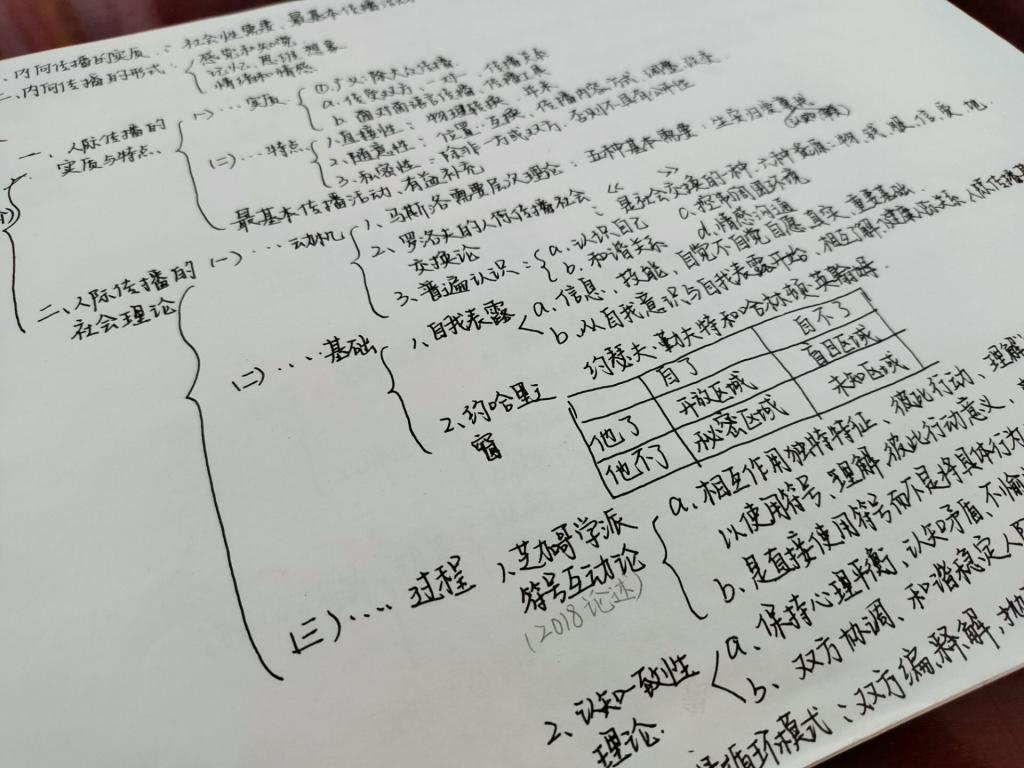 一、内向传播的实质:社会性
二、内向传播的形式:
感觉和知觉
记忆、思维、想象
情绪和情感
一、人际传播的
实质与特点
(一)…实质
①广义:除大众传播
a.传受双方:一对一,传播关系
b.面对面语言传播,传播工具
(二)…特点
1.直接性:物理
2.随意性:位置互换、传播内容、方式
3.私密性:除非一方或双方,否则不具有公开性
最基本传播活动,有益补充
二、人际传播的
社会理论
(一)…动机
1、马斯洛需要层次理论:五种基本需要:生安归爱尊我
2、罗洛夫的人际传播社会
交换论
《 》:是社会交换的一种.六种资源:物,钱,服,信,爱,地.
3、普遍认识:
a.认识自己
b.和谐关系
c.控制周围环境
d.情感沟通
(二)…基础
1、自我表露
a.信息,技能,自觉不自觉,自愿,真实,重要基础.
b.从自我意识与自我表露开始,相互了解,健康
2、约哈里之
窗
约瑟夫·勒夫特和哈林顿·英
自了 自不了
他了 开放区域 盲目区域
他不了 秘密区域 未知区域
(三)…. 过程
1、芝加哥学派
符号互动论
(2018论述)
a.相互作用独特特征、彼此行动、理解
以使用符号、理解、彼此行动意义,
b.是直接使用符号而不是将具体行为
2、认知一致性
理论.
a、保持心理平衡,认知矛盾、不愉
b、双方协调、和谐稳定人际
循环模式:双方编,释,解,